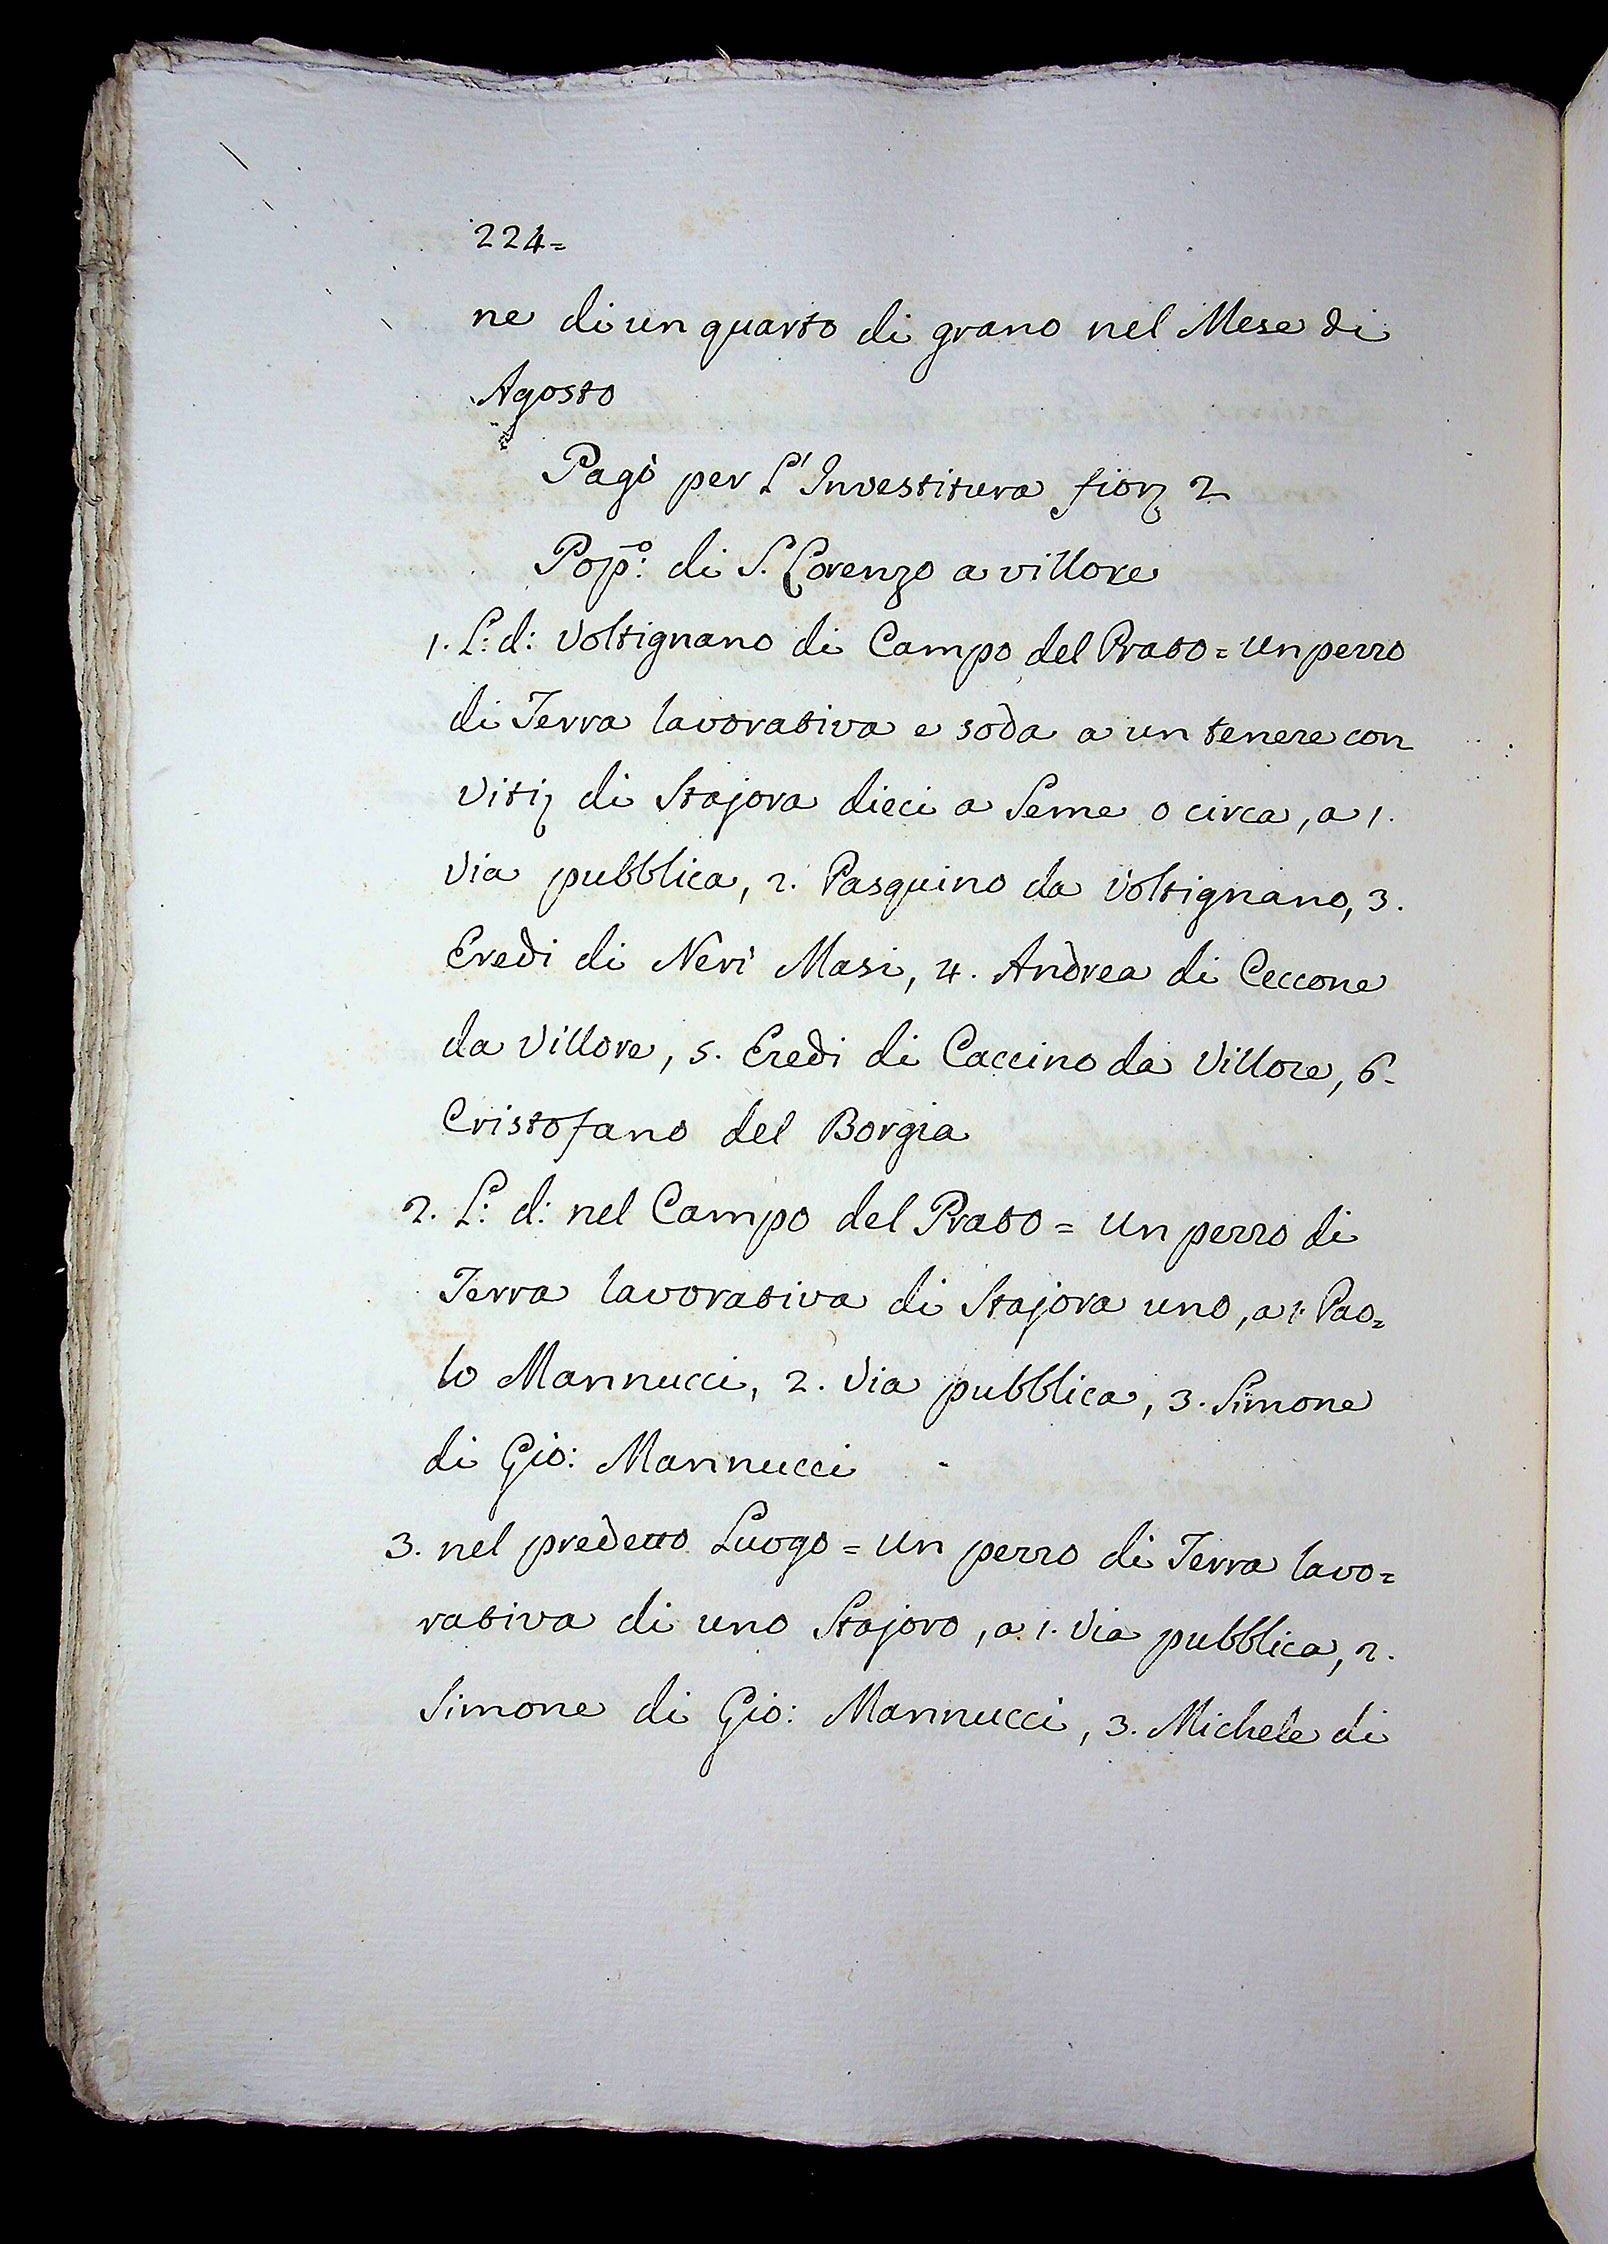 224=
ne di un quarto di grano nel Mese di
Agosto
Pagò per L'Investitura fior 2
Popo: di S. Lorenzo a villore
1. L: d: Voltignano di Campo del Prato = Un pezzo
di Terra lavorativa e soda a un tenere con
Viti di Stajora dieci a Seme o circa, a 1.
Via pubblica, 2. Pasquino da Voltignano, 3.
Eredi di Neri Masi, 4. Andrea di Ceccone
da Villore, 5. Eredi di Caccino da Villore, 6.
Cristofano del Borgia
2. L: d: nel Campo del Prato = Un pezzo di
Terra lavorativa di Stajora uno, a 1. Pao=
lo Mannucci, 2. Via pubblica, 3. Simone
di Gio: Mannucci
3. nel predetto Luogo = Un pezzo di Terra lavo=
rativa di uno Stajoro, a 1. Via pubblica, 2.
Simone di Gio: Mannucci, 3. Michele di